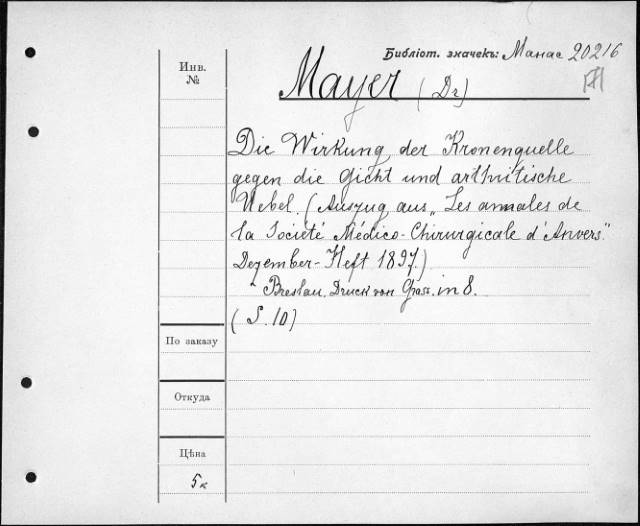 Библіот. значекъ: Манас 20216
Инв.
№
Mayer (Dr)
Die Wirkung der Kronenquelle
gegen die Gicht und arthritische
Uebel. (Auszug aus „Les annales de
la Société Médico-Chirurgicale d'Anvers"
Dezember-Heft 1897.)
Breslau. Druck von Grass. in 8.
(S. 10)
По заказу
Откуда
Цѣна
5к